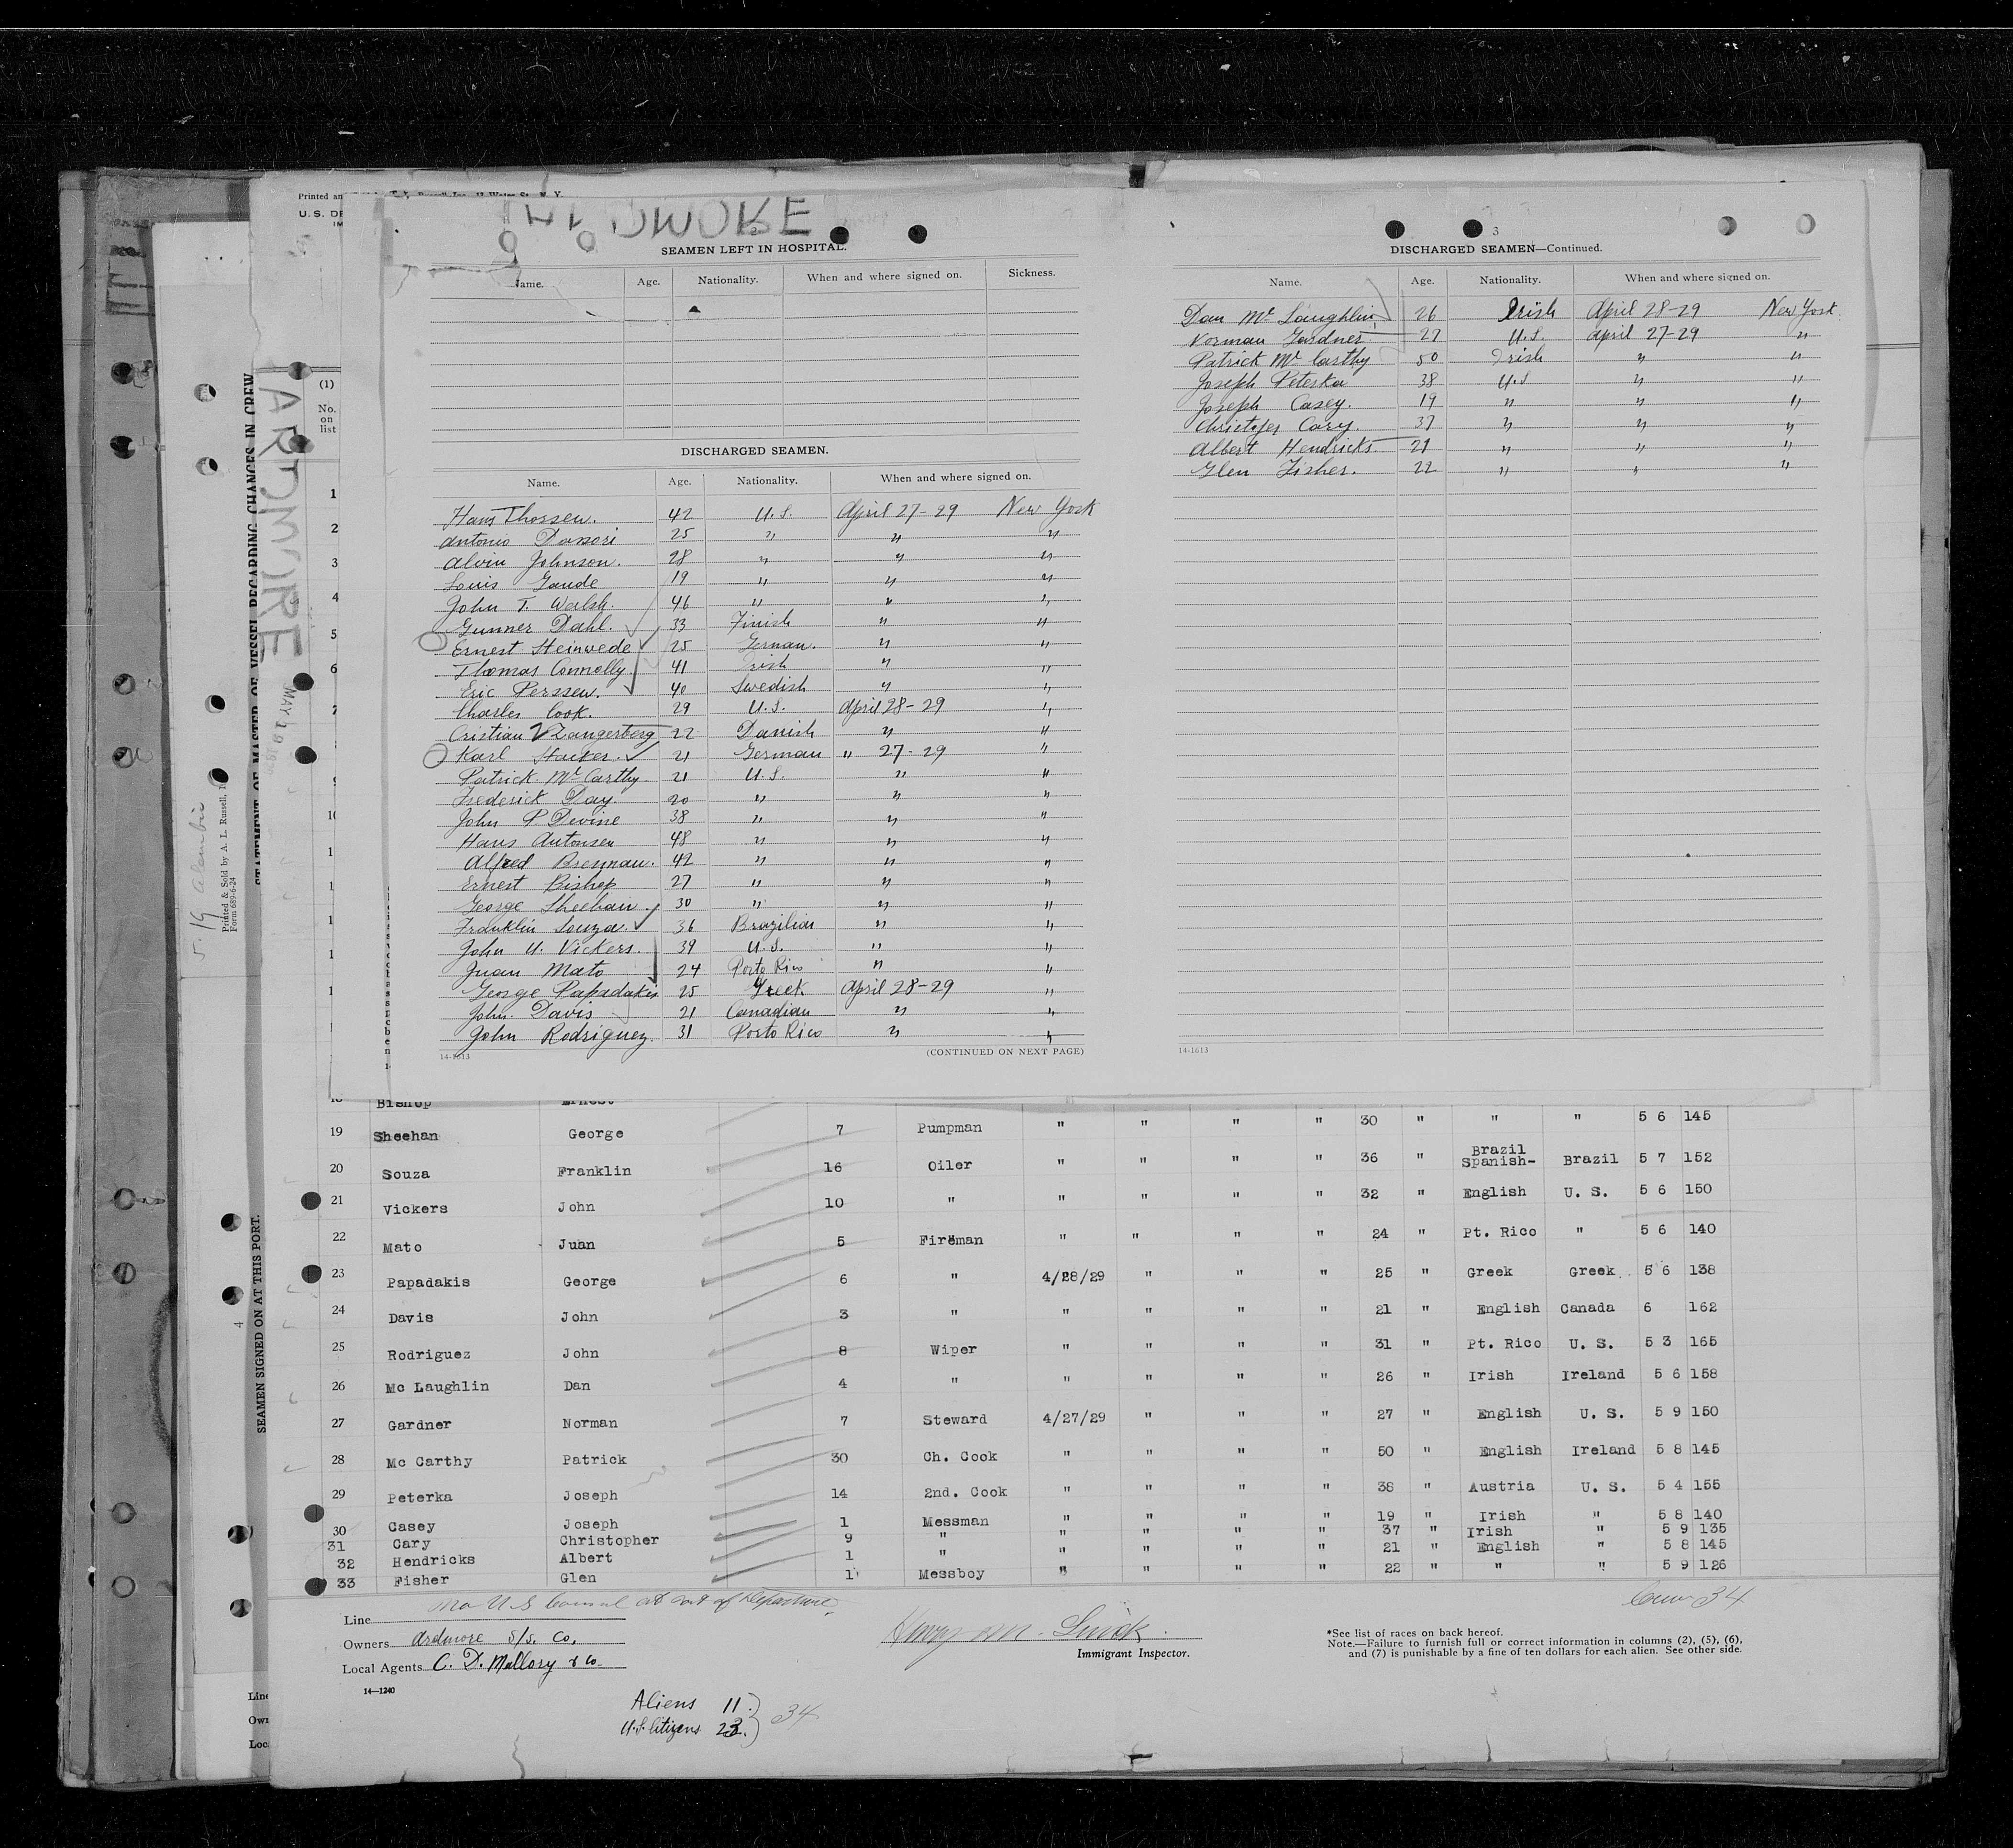 SEAMEN LEFT IN HOSPITAL.
Name. Age. Nationality. When and where signed on. Sickness.
DISCHARGED SEAMEN.
Name. Age. Nationality. When and where signed on.
Hans Thossen. 42 U.S. April 27-29 New York
Antonio Dansori 25 " " "
Alvin Johnson. 28 " " "
Louis Gaude 19 " " "
John T. Walsh. 46 " " "
Gunner Dahl. 33 Finish " "
Ernest Steinwede 25 German. " "
Thomas Connolly. 41 Irish " "
Eric Perssen. 40 Swedish " "
Charles Cook. 29 U.S. April 28-29 "
Cristian Zangerberg 22 Danish " "
Karl 21 German " 27-29 "
Patrick McCarthy 21 U.S. " "
Frederick Day. 20 " " "
John P. Devine 38 " " "
Hans Antonsen 48 " " "
Alfred Brennan. 42 " " "
Ernest Bishop 27 " " "
George Sheehan. 30 " " "
Franklin Souza. 36 Brazilian " "
John U. Vickers. 39 U.S. " "
Juan Mato 24 Porto Rico " "
George Papadakis 25 Greek April 28-29 "
John. Davis 21 Canadian " "
John Rodriguez. 31 Porto Rico " "
14-1613 (CONTINUED ON NEXT PAGE)
3
DISCHARGED SEAMEN—Continued.
Name. Age. Nationality. When and where signed on.
Dan McLaughlin 26 Irish April 28-29 New York.
Norman Gardner 27 U.S. April 27-29 "
Patrick McCarthy 50 Irish " "
Joseph Peterka 38 U.S " "
Joseph Casey. 19 " " "
Christofer Cary. 37 " " "
Albert Hendricks. 21 " " "
Glen Fisher. 22 " " "
14-1613
Printed an
U. S. DE
IM
(1)
No. on list
1
2
3
4
5
6
7
ARDMORE
MAY 19
STATEMENT OF MASTER OF VESSEL REGARDING CHANGES IN CREW
SEAMEN SIGNED ON AT THIS PORT.
Printed & Sold by A. L. Russell, I
Form 689-6-24
4
18 Bishop Ernest
19 Sheehan George 7 Pumpman " " " " 30 " " " 5 6 145
20 Souza Franklin 16 Oiler " " " " 36 " Brazil Spanish- Brazil 5 7 152
21 Vickers John 10 " " " " " 32 " English U. S. 5 6 150
22 Mato Juan 5 Fireman " " " " 24 " Pt. Rico " 5 6 140
23 Papadakis George 6 " 4/28/29 " " " 25 " Greek Greek 5 6 138
24 Davis John 3 " " " " " 21 " English Canada 6 162
25 Rodriguez John 8 Wiper " " " " 31 " Pt. Rico U. S. 5 3 165
26 Mc Laughlin Dan 4 " " " " " 26 " Irish Ireland 5 6 158
27 Gardner Norman 7 Steward 4/27/29 " " " 27 " English U. S. 5 9 150
28 Mc Carthy Patrick 30 Ch. Cook " " " " 50 " English Ireland 5 8 145
29 Peterka Joseph 14 2nd. Cook " " " " 38 " Austria U. S. 5 4 155
30 Casey Joseph 1 Messman " " " " 19 " Irish " 5 8 140
31 Cary Christopher 9 " " " " " 37 " Irish " 5 9 135
32 Hendricks Albert 1 " " " " " 21 " English " 5 8 145
33 Fisher Glen 1 Messboy " " " " 22 " " " 5 9 126
No U S Consul at Port of Departure.
Crew 34
Line
Owners Ardmore S/S. Co,
Local Agents C. D. Mallory & Co.
14—1240
Immigrant Inspector.
*See list of races on back hereof.
Note.—Failure to furnish full or correct information in columns (2), (5), (6),
and (7) is punishable by a fine of ten dollars for each alien. See other side.
Aliens 11.
U.S. Citizens 23. 34
Line
Own
Loc